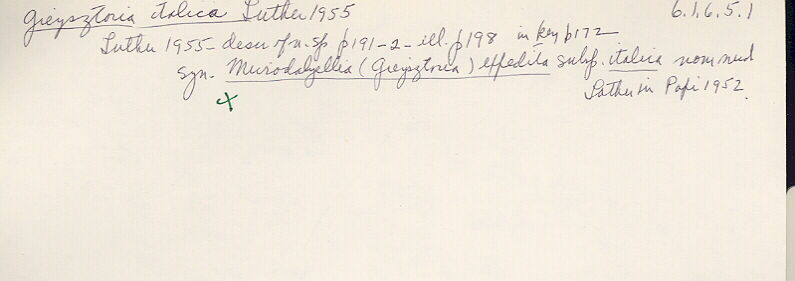 Gieysztoria italica Luther 1955 6.1.6.5.1
Luther 1955 - descr of n. sp p191-2 - ill. p198 in key p172
syn. Microdalyellia (Gieysztoria) expedita subsp. italica nom nud
Luther in Papi 1952.
x